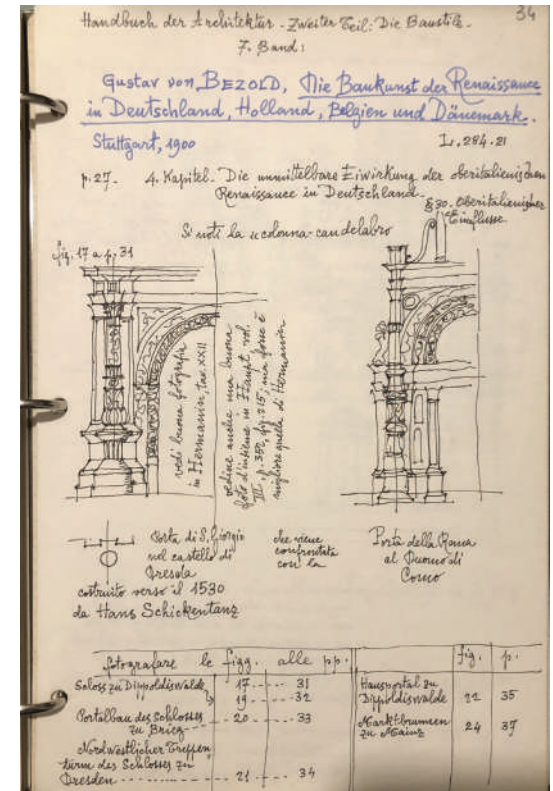 34
Handbuch der Architektur - Zweiter Teil: Die Baustile -
7. Band:
Gustav von BEZOLD, Die Baukunst der Renaissance
in Deutschland, Holland, Belgien und Dänemark.
Stuttgart, 1900
L.284.21
p.27- 4. Kapitel. Die unmittelbare Eiwirkung der oberitalienischen
Renaissance in Deutschland-
§30. Oberitalienischer
Einflusse
Si noti la colonna-candelabro
fig. 17 a p. 31
vedi buona fotografia
in Hermanin, tav. XXII
vedine anche una buona
foto d'insieme in Haupt, vol.
III, p. 352, fig. 315, ma forse è
migliore quella di Hermanin
Porta di S. Giorgio
nel castello di
Dresda
costruito verso il 1530
da Hans Schickentanz
che viene
confrontata
con la
Porta della Rana
al Duomo di
Como
fotografare le figg. alle pp.
Schloss zu Dippoldiswalde 17 ---- 31
19 ---- 32
Portalbau des Schlosses
zu Brieg -- 20 ---- 33
Nordwestlicher Treppen
turm des Schlosses zu
Dresden ---------- 21 ---- 34
fig. p.
Hausportal zu
Dippoldiswalde 22 35
Marktbrunnen
zu Mainz 24 37